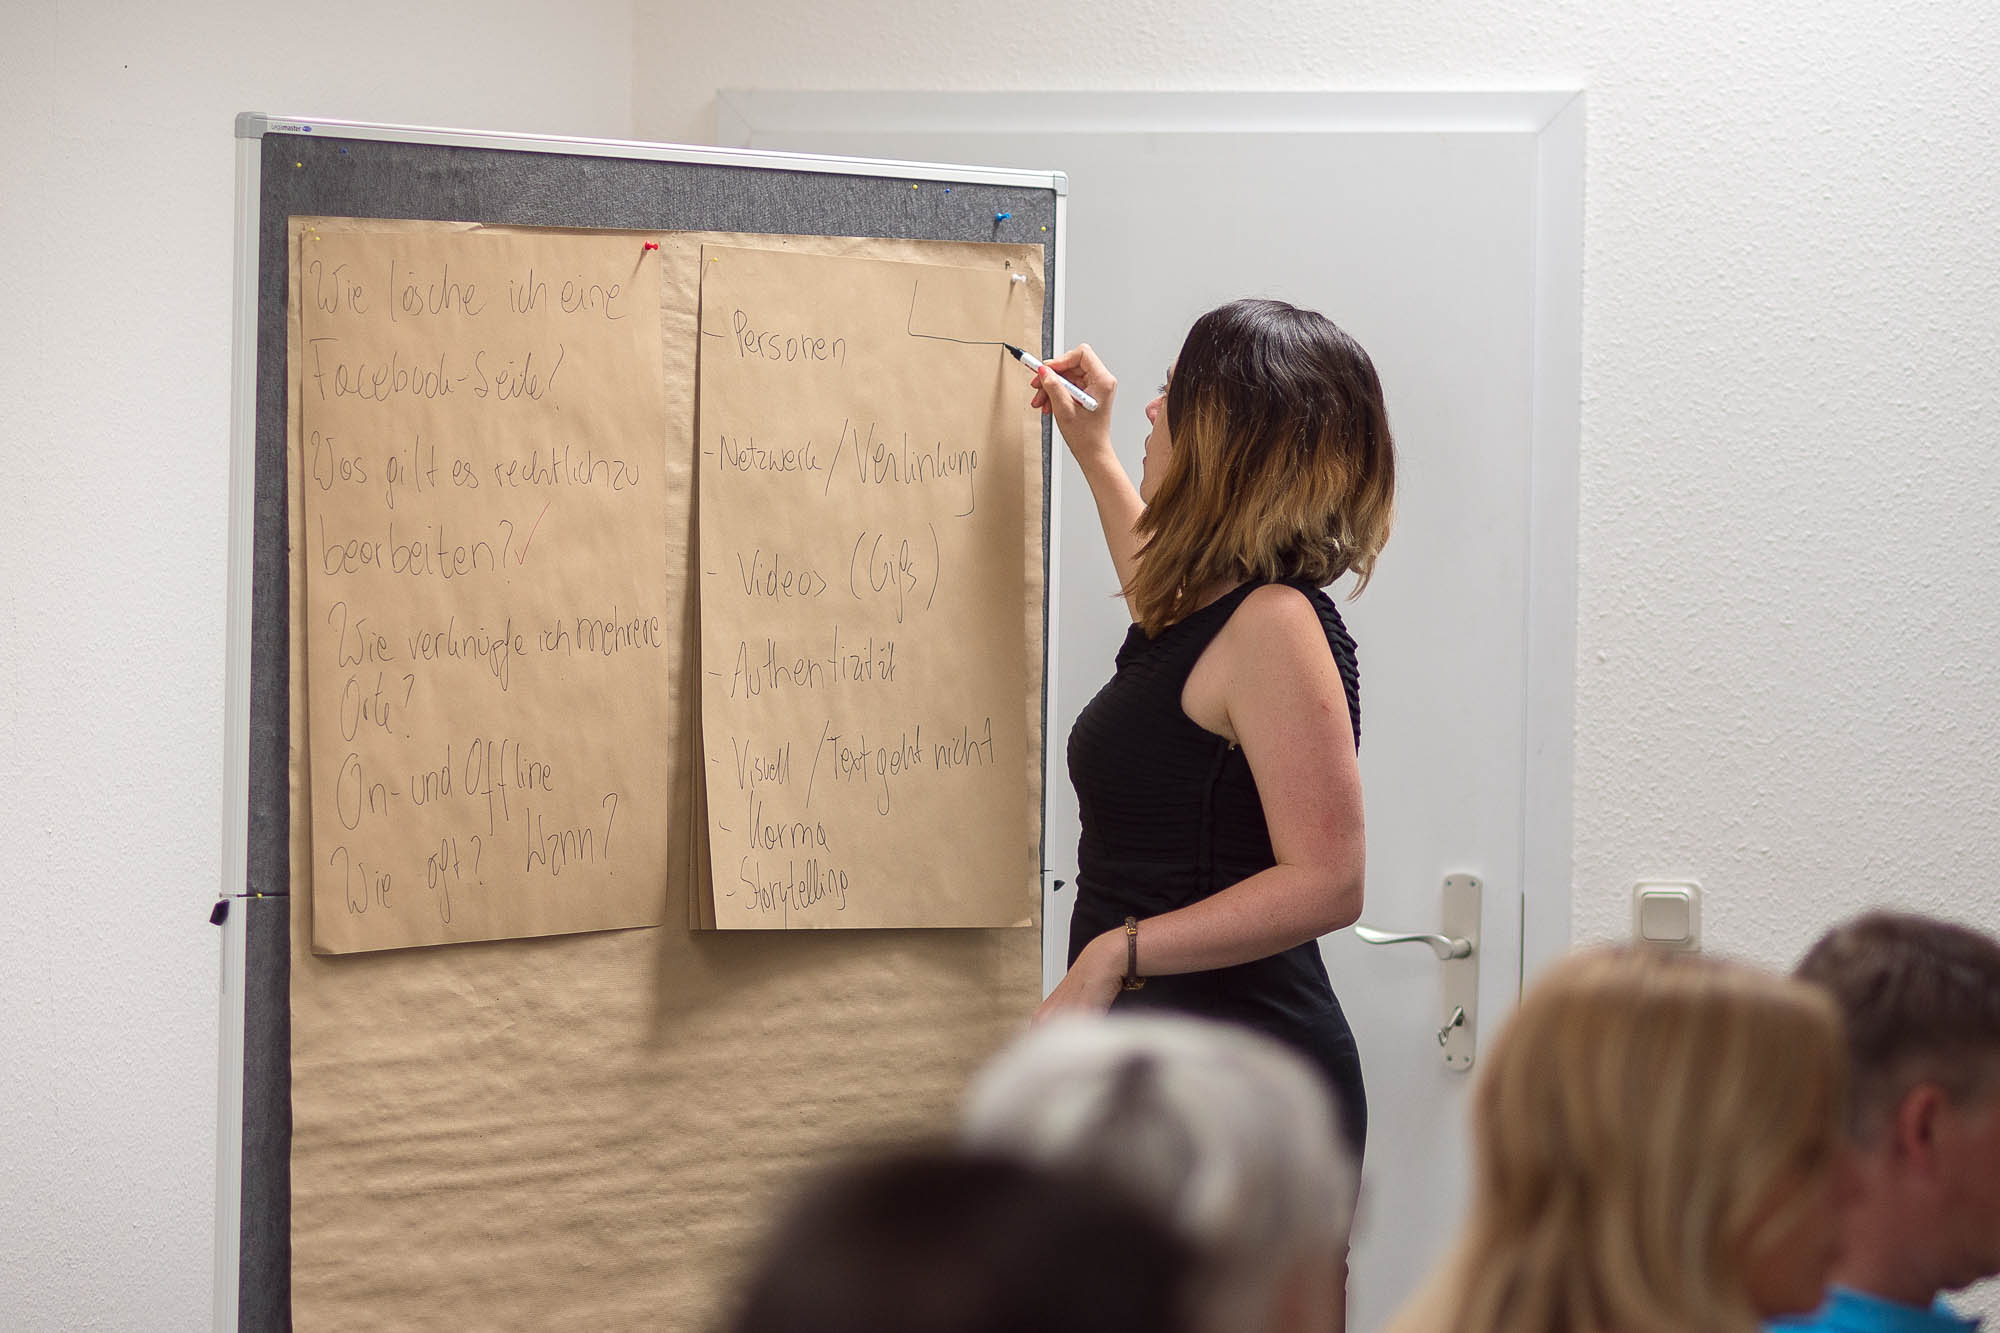 Legamaster
Wie lösche ich eine
Facebook-Seite?
Was gilt es rechtlich zu
bearbeiten? ✓
Wie verknüpfe ich mehrere
Orte?
On- und Offline
Wie oft? Wann?
- Personen
- Netzwerk / Verlinkung
- Videos (Gifs)
- Authentizität
- Visuell / Text geht nicht
- Karma
- Storytelling